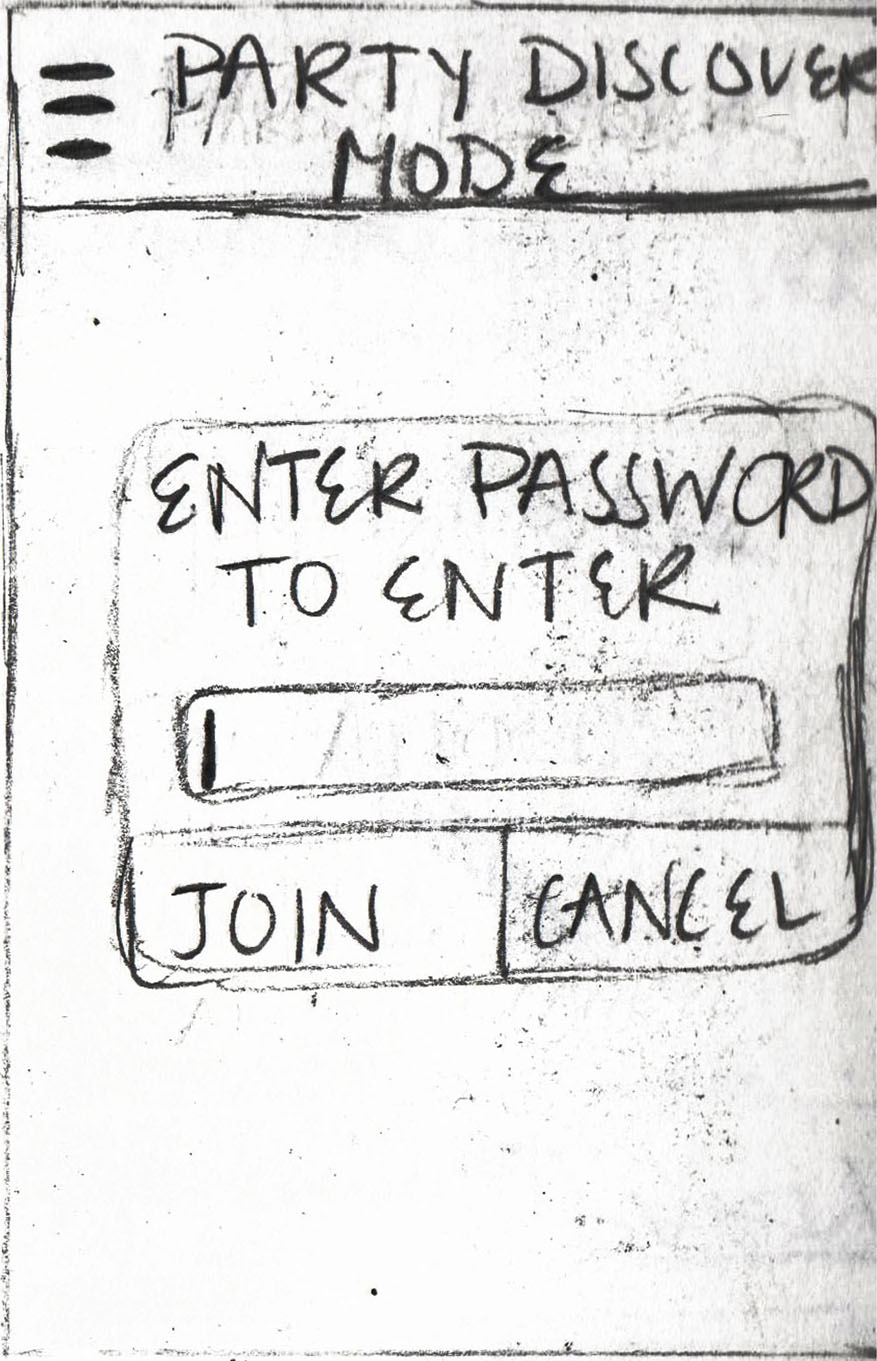 PARTY DISCOVER
MODE
ENTER PASSWORD
TO ENTER
JOIN
CANCEL